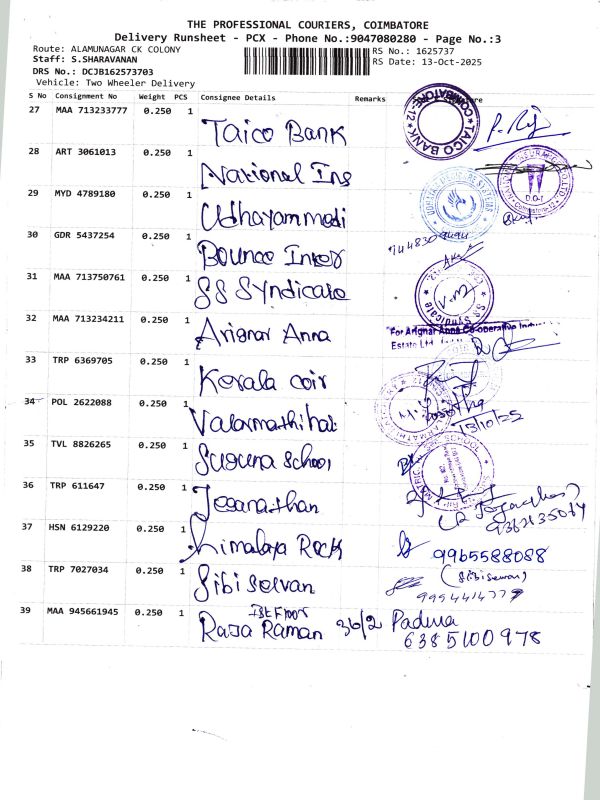 THE PROFESSIONAL COURIERS, COIMBATORE
Delivery Runsheet - PCX - Phone No.:9047080280 - Page No.:3
Route: ALAMUNAGAR CK COLONY
Staff: S.SHARAVANAN
DRS No.: DCJB162573703
Vehicle: Two Wheeler Delivery
RS No.: 1625737
RS Date: 13-Oct-2025
S No Consignment No Weight PCS Consignee Details Remarks
27 MAA 713233777 0.250 1 Taico Bank
TAICO BANK COIMBATORE-12
28 ART 3061013 0.250 1 National Ins
29 MYD 4789180 0.250 1 Udhayammodi
30 GDR 5437254 0.250 1 Bounce Inker
31 MAA 713750761 0.250 1 SS Syndicate
S.S. Syndicate
32 MAA 713234211 0.250 1 Arignar Anna
For Arignar Anna Co-operative
Estate Ltd.
33 TRP 6369705 0.250 1 Kerala coir
34 POL 2622088 0.250 1 Valarmathi
13/10/25
35 TVL 8826265 0.250 1 Suguna School
36 TRP 611647 0.250 1 Jeganathan
37 HSN 6129220 0.250 1 Himalaya Rock 9965588088
38 TRP 7027034 0.250 1 Sibi Selvan
39 MAA 945661945 0.250 1 Raja Raman 1st Floor 36/2 Padma
6385100978